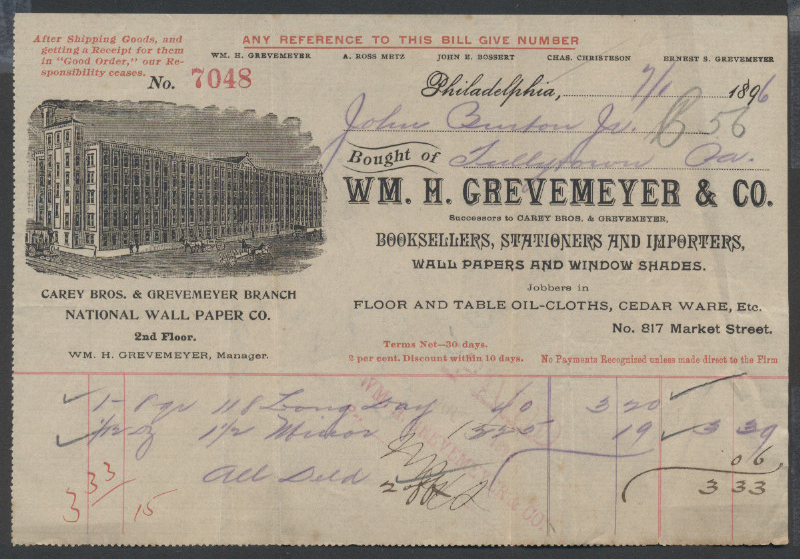 After Shipping Goods, and
getting a Receipt for them
in "Good Order," our Re-
sponsibility ceases.
ANY REFERENCE TO THIS BILL GIVE NUMBER
WM. H. GREVEMEYER A. ROSS METZ JOHN E. BOSSERT CHAS. CHRISTESON ERNEST S. GREVEMEYER
No. 7048
Philadelphia, 7/1 1896
John Burton Jr. 56
Bought of Pa.
WM. H. GREVEMEYER & CO.
Successors to CAREY BROS. & GREVEMEYER,
BOOKSELLERS, STATIONERS AND IMPORTERS,
WALL PAPERS AND WINDOW SHADES.
Jobbers in
FLOOR AND TABLE OIL-CLOTHS, CEDAR WARE, Etc.
No. 817 Market Street.
CAREY BROS. & GREVEMEYER BRANCH
NATIONAL WALL PAPER CO.
2nd Floor.
WM. H. GREVEMEYER, Manager.
Terms Net—30 days.
2 per cent. Discount within 10 days. No Payments Recognized unless made direct to the Firm
118 Long Day 40 3 20
1/2 1 1/2 Mirror 1525 19 3 39
06
All Deld 2 off 3 33
3 33/15
WM. H. GREVEMEYER & CO.